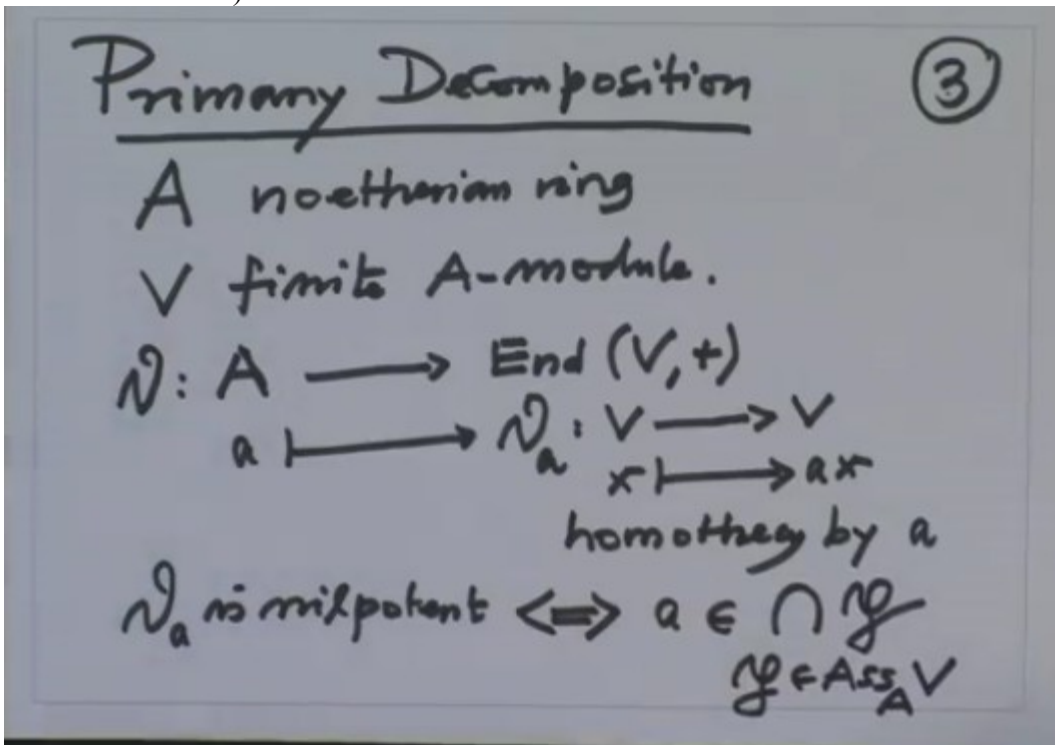 Primary Decomposition ③
A noetherian ring
V finite A-module.
ϑ: A ⟶ End (V, +)
a ⟼ ϑ_a : V ⟶ V
x ⟼ ax
homothecy by a
ϑ_a is nilpotent ⟺ a ∈ ⋂ 𝔭
𝔭 ∈ Ass_A V